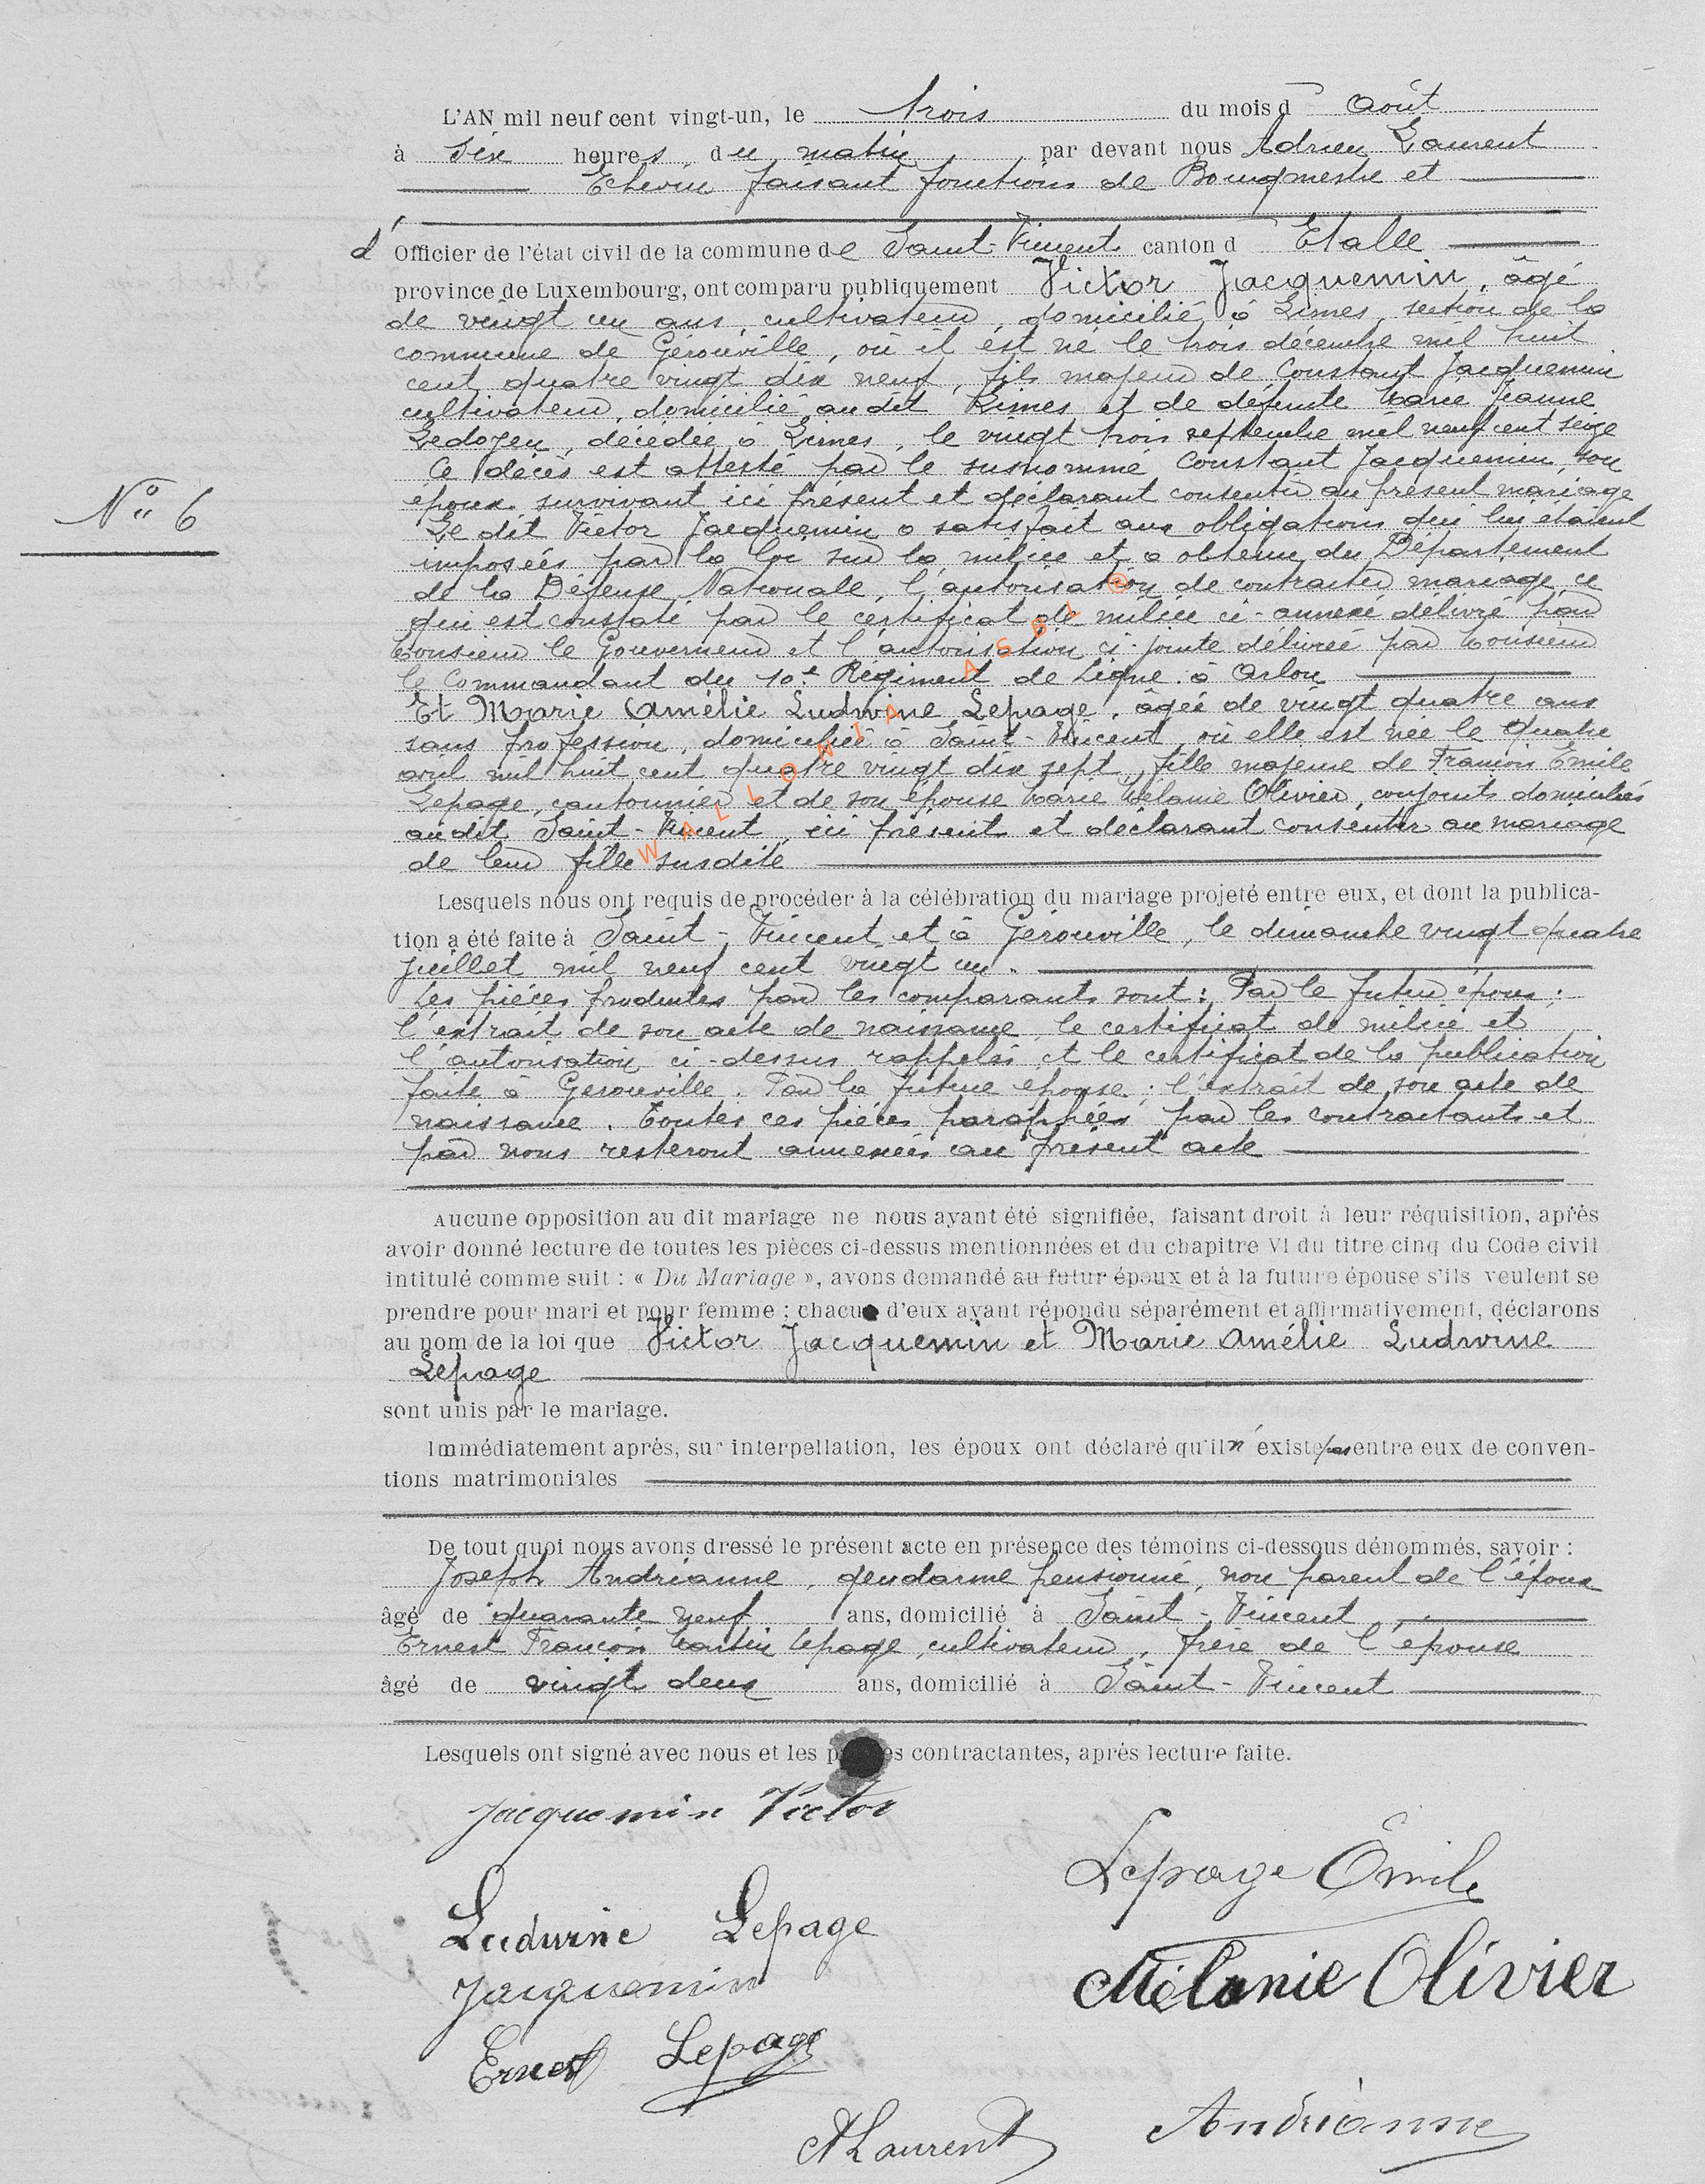 L'AN mil neuf cent vingt-un, le trois du mois d Août
à six heures du matin par devant nous Adrien Laurent
Echevin faisant fonctions de Bourgmestre et
d' Officier de l'état civil de la commune de Saint-Vincent canton d Etalle
province de Luxembourg, ont comparu publiquement Victor Jacquemin, âgé
de vingt un ans, cultivateur, domicilié à Limes, section de la
commune de Gérouville, où il est né le trois décembre mil huit
cent quatre vingt dix neuf, fils majeur de Constant Jacquemin
cultivateur, domicilié audit Limes et de défunte Marie Jeanne
Ledoyen, décédée à Limes, le vingt trois septembre mil neuf cent seize
Ce décès est attesté par le susnommé Constant Jacquemin, son
époux survivant ici présent et déclarant consentir au présent mariage
Le dit Victor Jacquemin a satisfait aux obligations qui lui étaient
N° 6
imposées par la loi sur la milice et a obtenu du Département
de la Défense Nationale, l'autorisation de contracter mariage, ce
qui est constaté par le certificat de milice ci-annexé délivré par
Monsieur le Gouverneur et l'autorisation ci-jointe délivrée par Monsieur
le Commandant du 10e Régiment de Ligne à Arlon
Et Marie Amélie Ludwine Lepage, âgée de vingt quatre ans
sans profession, domiciliée à Saint-Vincent où elle est née le quatre
avril mil huit cent quatre vingt dix sept, fille majeure de François Emile
Lepage, cantonnier et de son épouse Marie Mélanie Olivier, conjoints domiciliés
audit Saint-Vincent, ici présents et déclarant consentir au mariage
de leur fille susdite
WALLONIA ASBL ©
Lesquels nous ont requis de procéder à la célébration du mariage projeté entre eux, et dont la publica-
tion a été faite à Saint-Vincent et à Gérouville, le dimanche vingt quatre
juillet mil neuf cent vingt un.
Les pièces produites par les comparants sont: Par le futur époux:
l'extrait de son acte de naissance, le certificat de milice et
l'autorisation ci-dessus rappelés et le certificat de la publication
faite à Gerouville. Par la future epouse: l'extrait de son acte de
naissance. Toutes ces pièces paraphées par les contractants et
par nous resteront annexées au présent acte
Aucune opposition au dit mariage ne nous ayant été signifiée, faisant droit à leur réquisition, après
avoir donné lecture de toutes les pièces ci-dessus mentionnées et du chapitre VI du titre cinq du Code civil
intitulé comme suit : « Du Mariage », avons demandé au futur époux et à la future épouse s'ils veulent se
prendre pour mari et pour femme ; chacun d'eux ayant répondu séparément et affirmativement, déclarons
au nom de la loi que Victor Jacquemin et Marie Amélie Ludwine
Lepage
sont unis par le mariage.
Immédiatement après, sur interpellation, les époux ont déclaré qu'il n'existe pas entre eux de conven-
tions matrimoniales
De tout quoi nous avons dressé le présent acte en présence des témoins ci-dessous dénommés, savoir :
Joseph Andrianne, gendarme pensionné, non parent de l'époux
âgé de quarante neuf ans, domicilié à Saint-Vincent
Ernest François Martin Lepage, cultivateur, frère de l'épouse
âgé de vingt deux ans, domicilié à Saint-Vincent
Lesquels ont signé avec nous et les parties contractantes, après lecture faite.
Jacquemin Victor
Lepage Emile
Ludwine Lepage
Mélanie Olivier
Jacquemin
Ernest Lepage
ALaurent
Andrianne